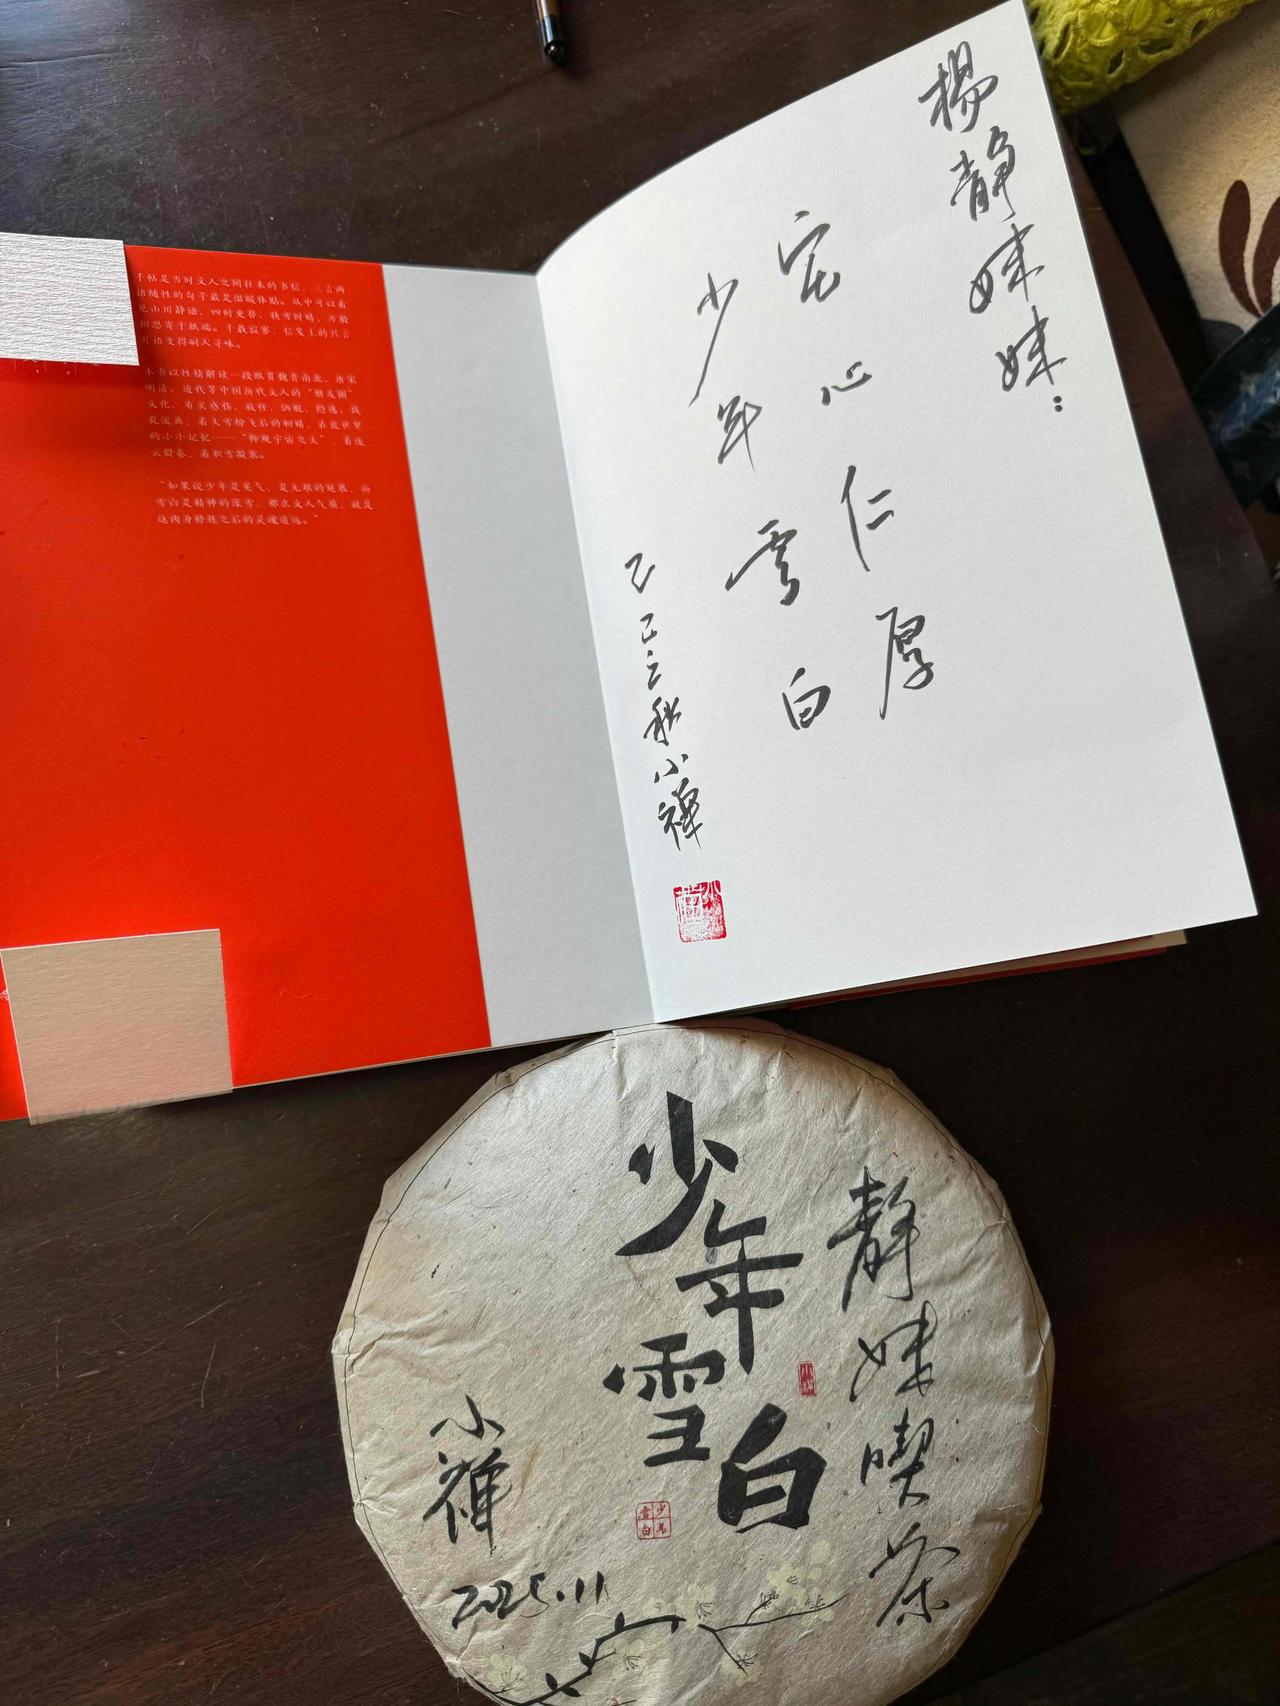 手帖是当时文人之间往来的书信，三言两
语随性的句子最是温暖体贴。从中可以看
见山川静谧，四时更替，快雪时晴，万般
相思寄于纸端。千载寂寥，信笺上的只言
片语变得耐人寻味。
本书以性精解读一段纵贯魏晋南北、唐宋
明清、近代等中国历代文人的“朋友圈”
文化，有关感伤、放任、洒脱、隐逸、战
乱流离，看大雪纷飞后的初晴，在乱世里
的小小记忆……“仰观宇宙之大”，看流
云舒卷，看积雪凝寒。
“如果说少年是英气，是无垠的延展，而
雪白是精神的深雪，那么文人气质，就是
这肉身修炼之后的灵魂追远。”
楊静妹妹：
宅心仁厚
少年雪白
乙巳之秋小禅
少年
雪白
静妹喫茶
小禅
少年雪白
小禅
2025.11